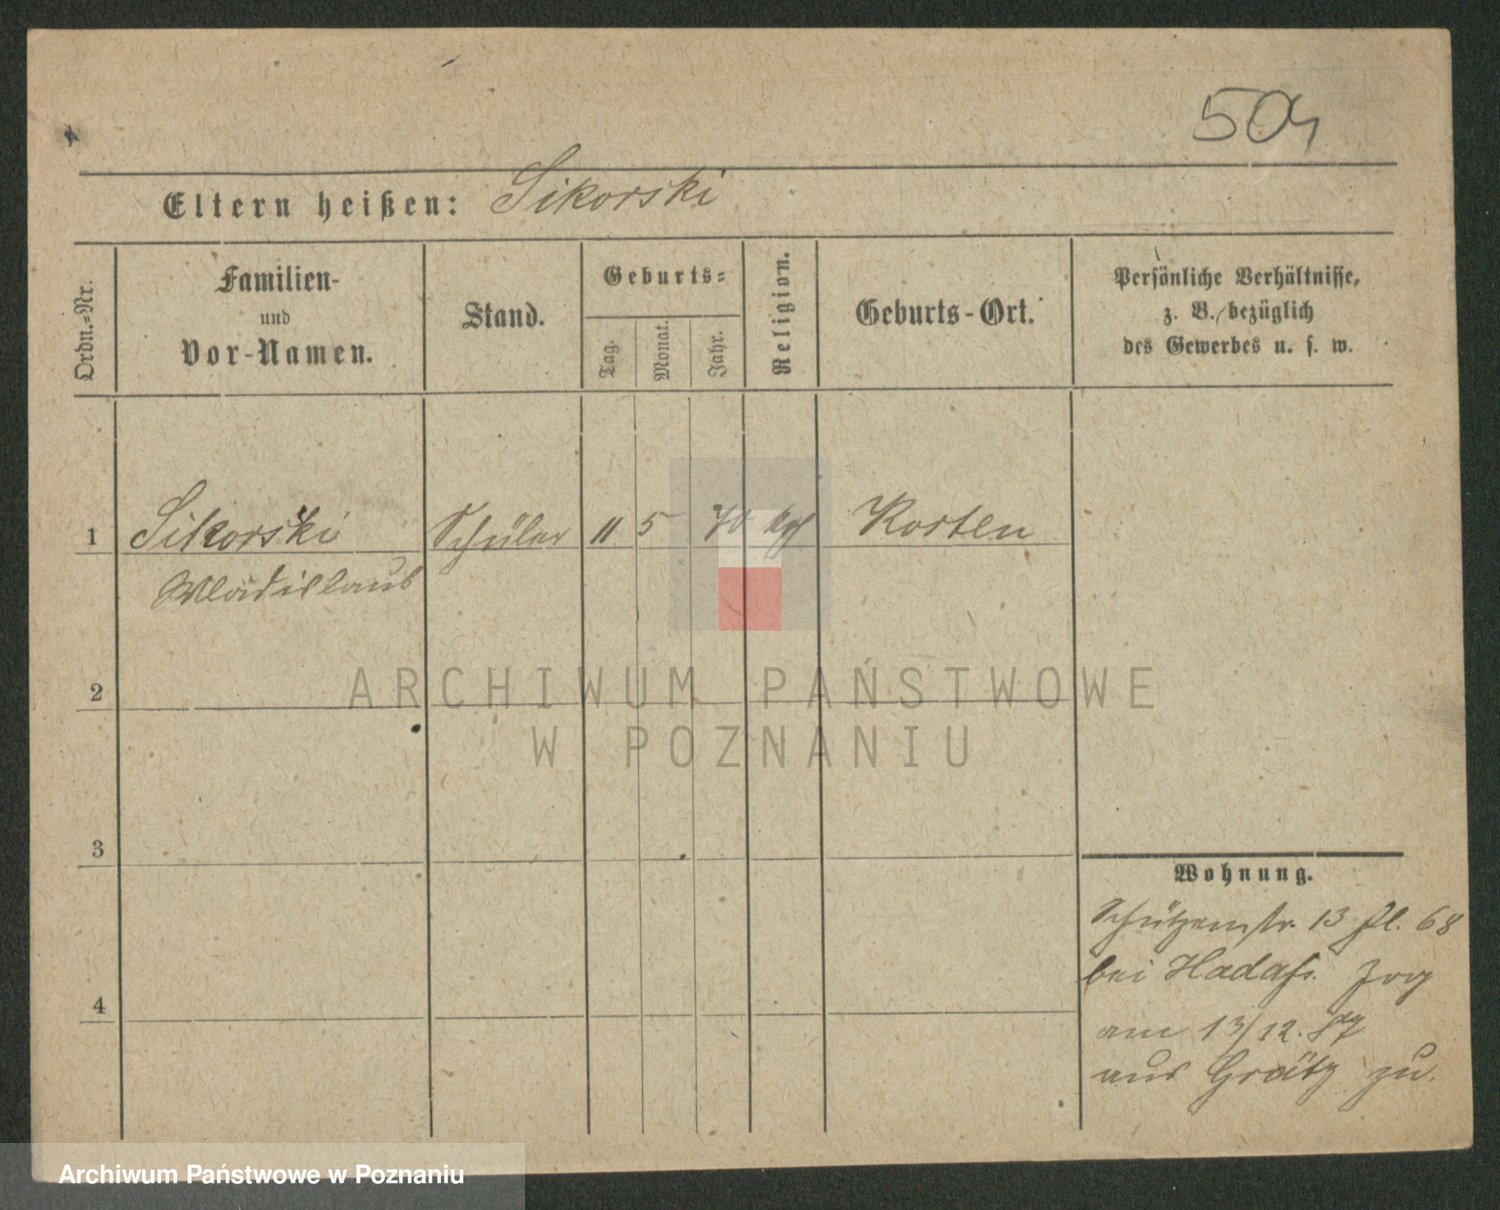 504
Eltern heißen: Sikorski
Ordn.-Nr.
Familien-
und
Vor-Namen.
Stand.
Geburts-
Tag.
Monat.
Jahr.
Religion.
Geburts-Ort.
Persönliche Verhältnisse,
z. B. bezüglich
des Gewerbes u. s. w.
1 Sikorski Schüler 11 5 70 kath Kosten
Wladislaus
2
3
4
Wohnung.
Schützenstr. 13 fl. 68
bei Hadaß. Zog
am 13/12. 87
aus Grätz zu.
ARCHIWUM PAŃSTWOWE
W POZNANIU
Archiwum Państwowe w Poznaniu